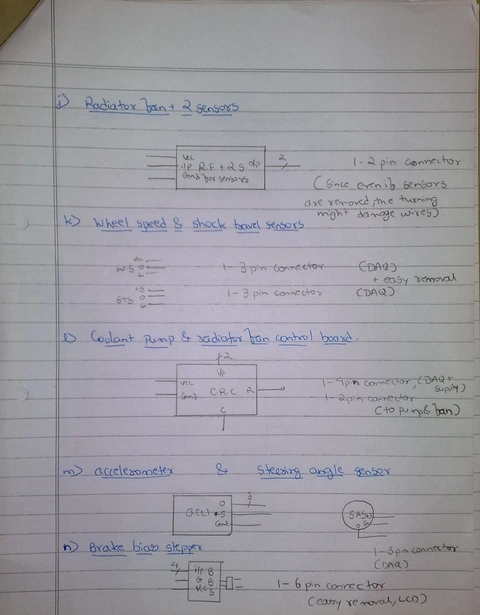 j) Radiator fan + 2 sensors
Vcc
i/p R.F + 2 S o/p
Gnd for sensors
2
1 - 2 pin connector
(since even if sensors
are removed, the turning
might damage wires)
k) Wheel speed & shock travel sensors
W.S
1 - 3 pin connector (DAQ)
+ easy removal
STS
1 - 3 pin connector (DAQ)
l) Coolant pump & radiator fan control board.
2
Vcc
Gnd
C R C R
C
1 - 4 pin connector, (DAQ +
supply)
1 - 2 pin connector
(to pump & fan)
m) accelerometer & steering angle sensor
O
acc1 +S
Gnd
3
SAS
1 - 3 pin connector
(DAQ)
n) Brake bias stepper
4
i/p B
G S
S
1 - 6 pin connector
(easy removal, LCD)